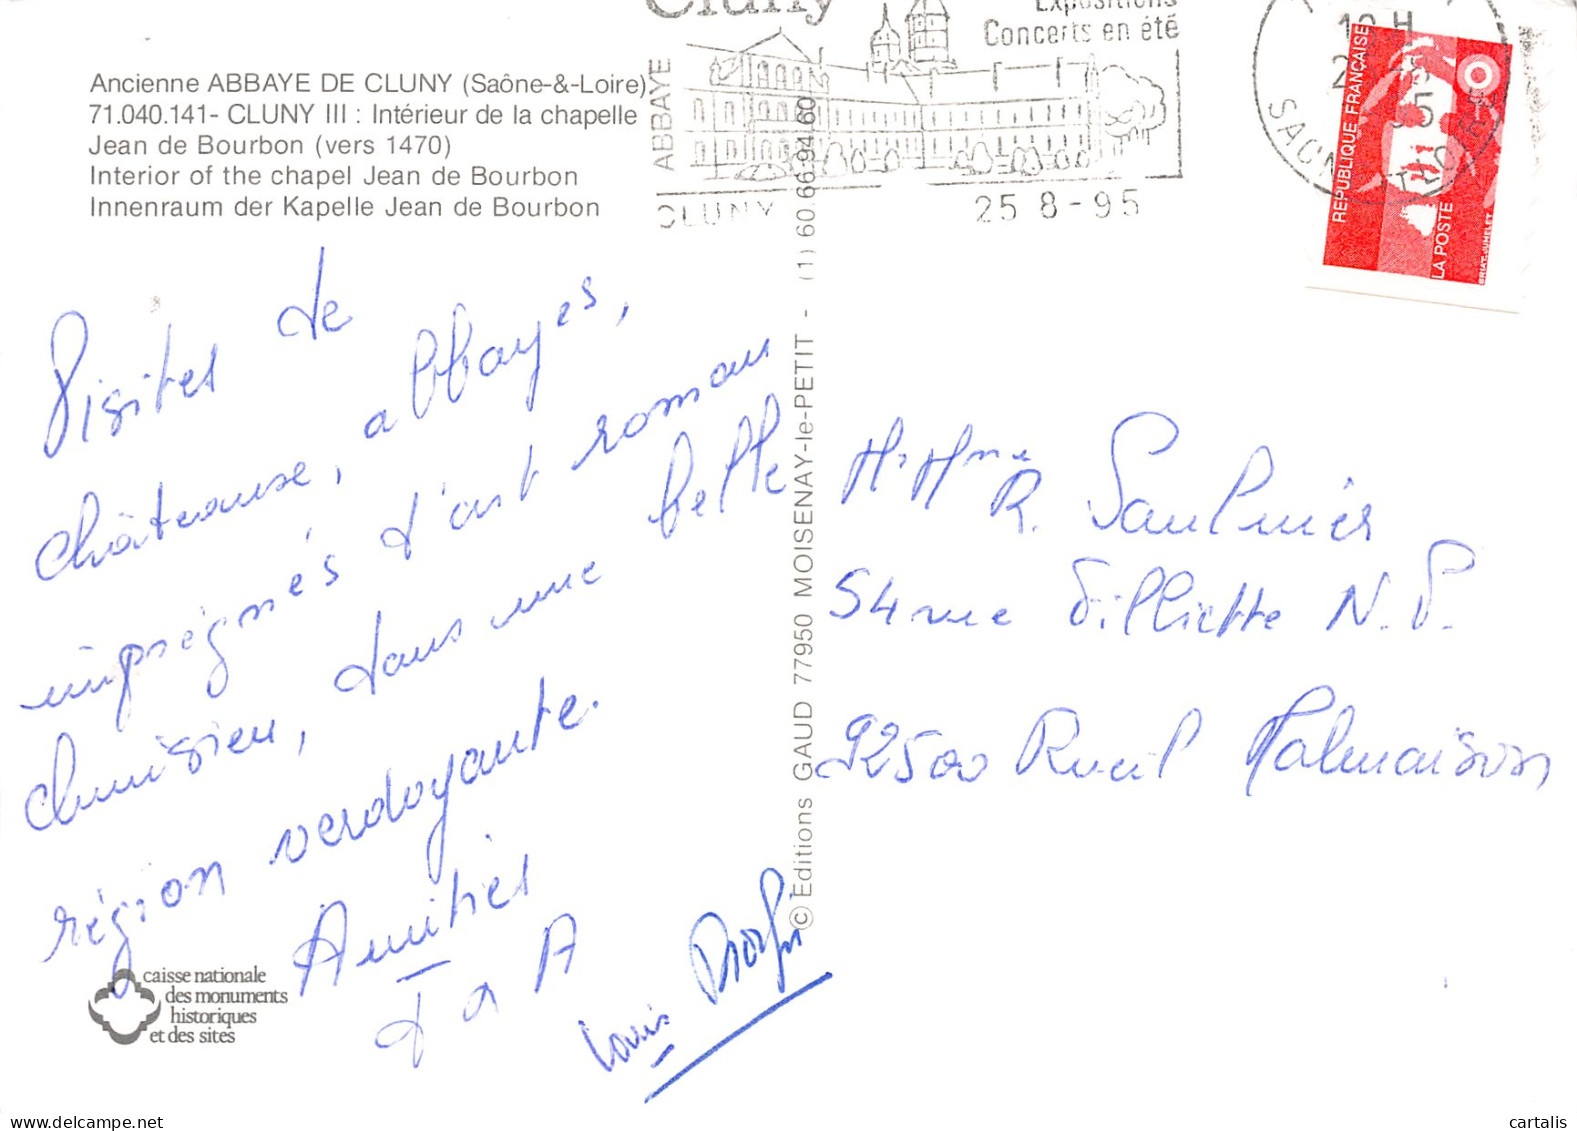 Ancienne ABBAYE DE CLUNY (Saône-&-Loire)
71.040.141- CLUNY III : Intérieur de la chapelle
Jean de Bourbon (vers 1470)
Interior of the chapel Jean de Bourbon
Innenraum der Kapelle Jean de Bourbon
Cluny
Expositions
Concerts en été
ABBAYE
CLUNY
25 8 - 95
REPUBLIQUE FRANÇAISE
LA POSTE
Visites de
châteaux, abbayes,
imprégnés d'art roman
clunisien, dans une belle
région verdoyante.
Amitiés
Louis
© Editions GAUD 77950 MOISENAY-le-PETIT - (1) 60.66.94.60
Mr Mme
R. Saulnier
54 rue Filliette N. P.
92500 Rueil Malmaison
caisse nationale
des monuments
historiques
et des sites
cartalis